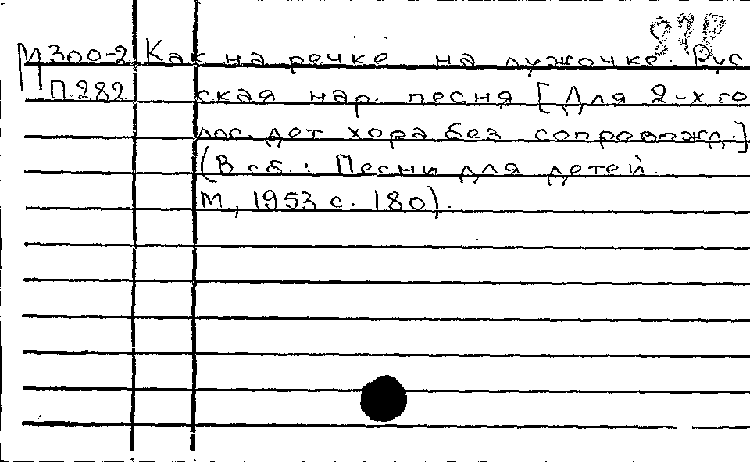 М300-2 Как на речке на лужочке. Рус
П.282 ская нар. песня [Для 2-х го
лос. дет хора без сопровожд.]
(В сб.: Песни для детей.
М, 1953 с. 180).